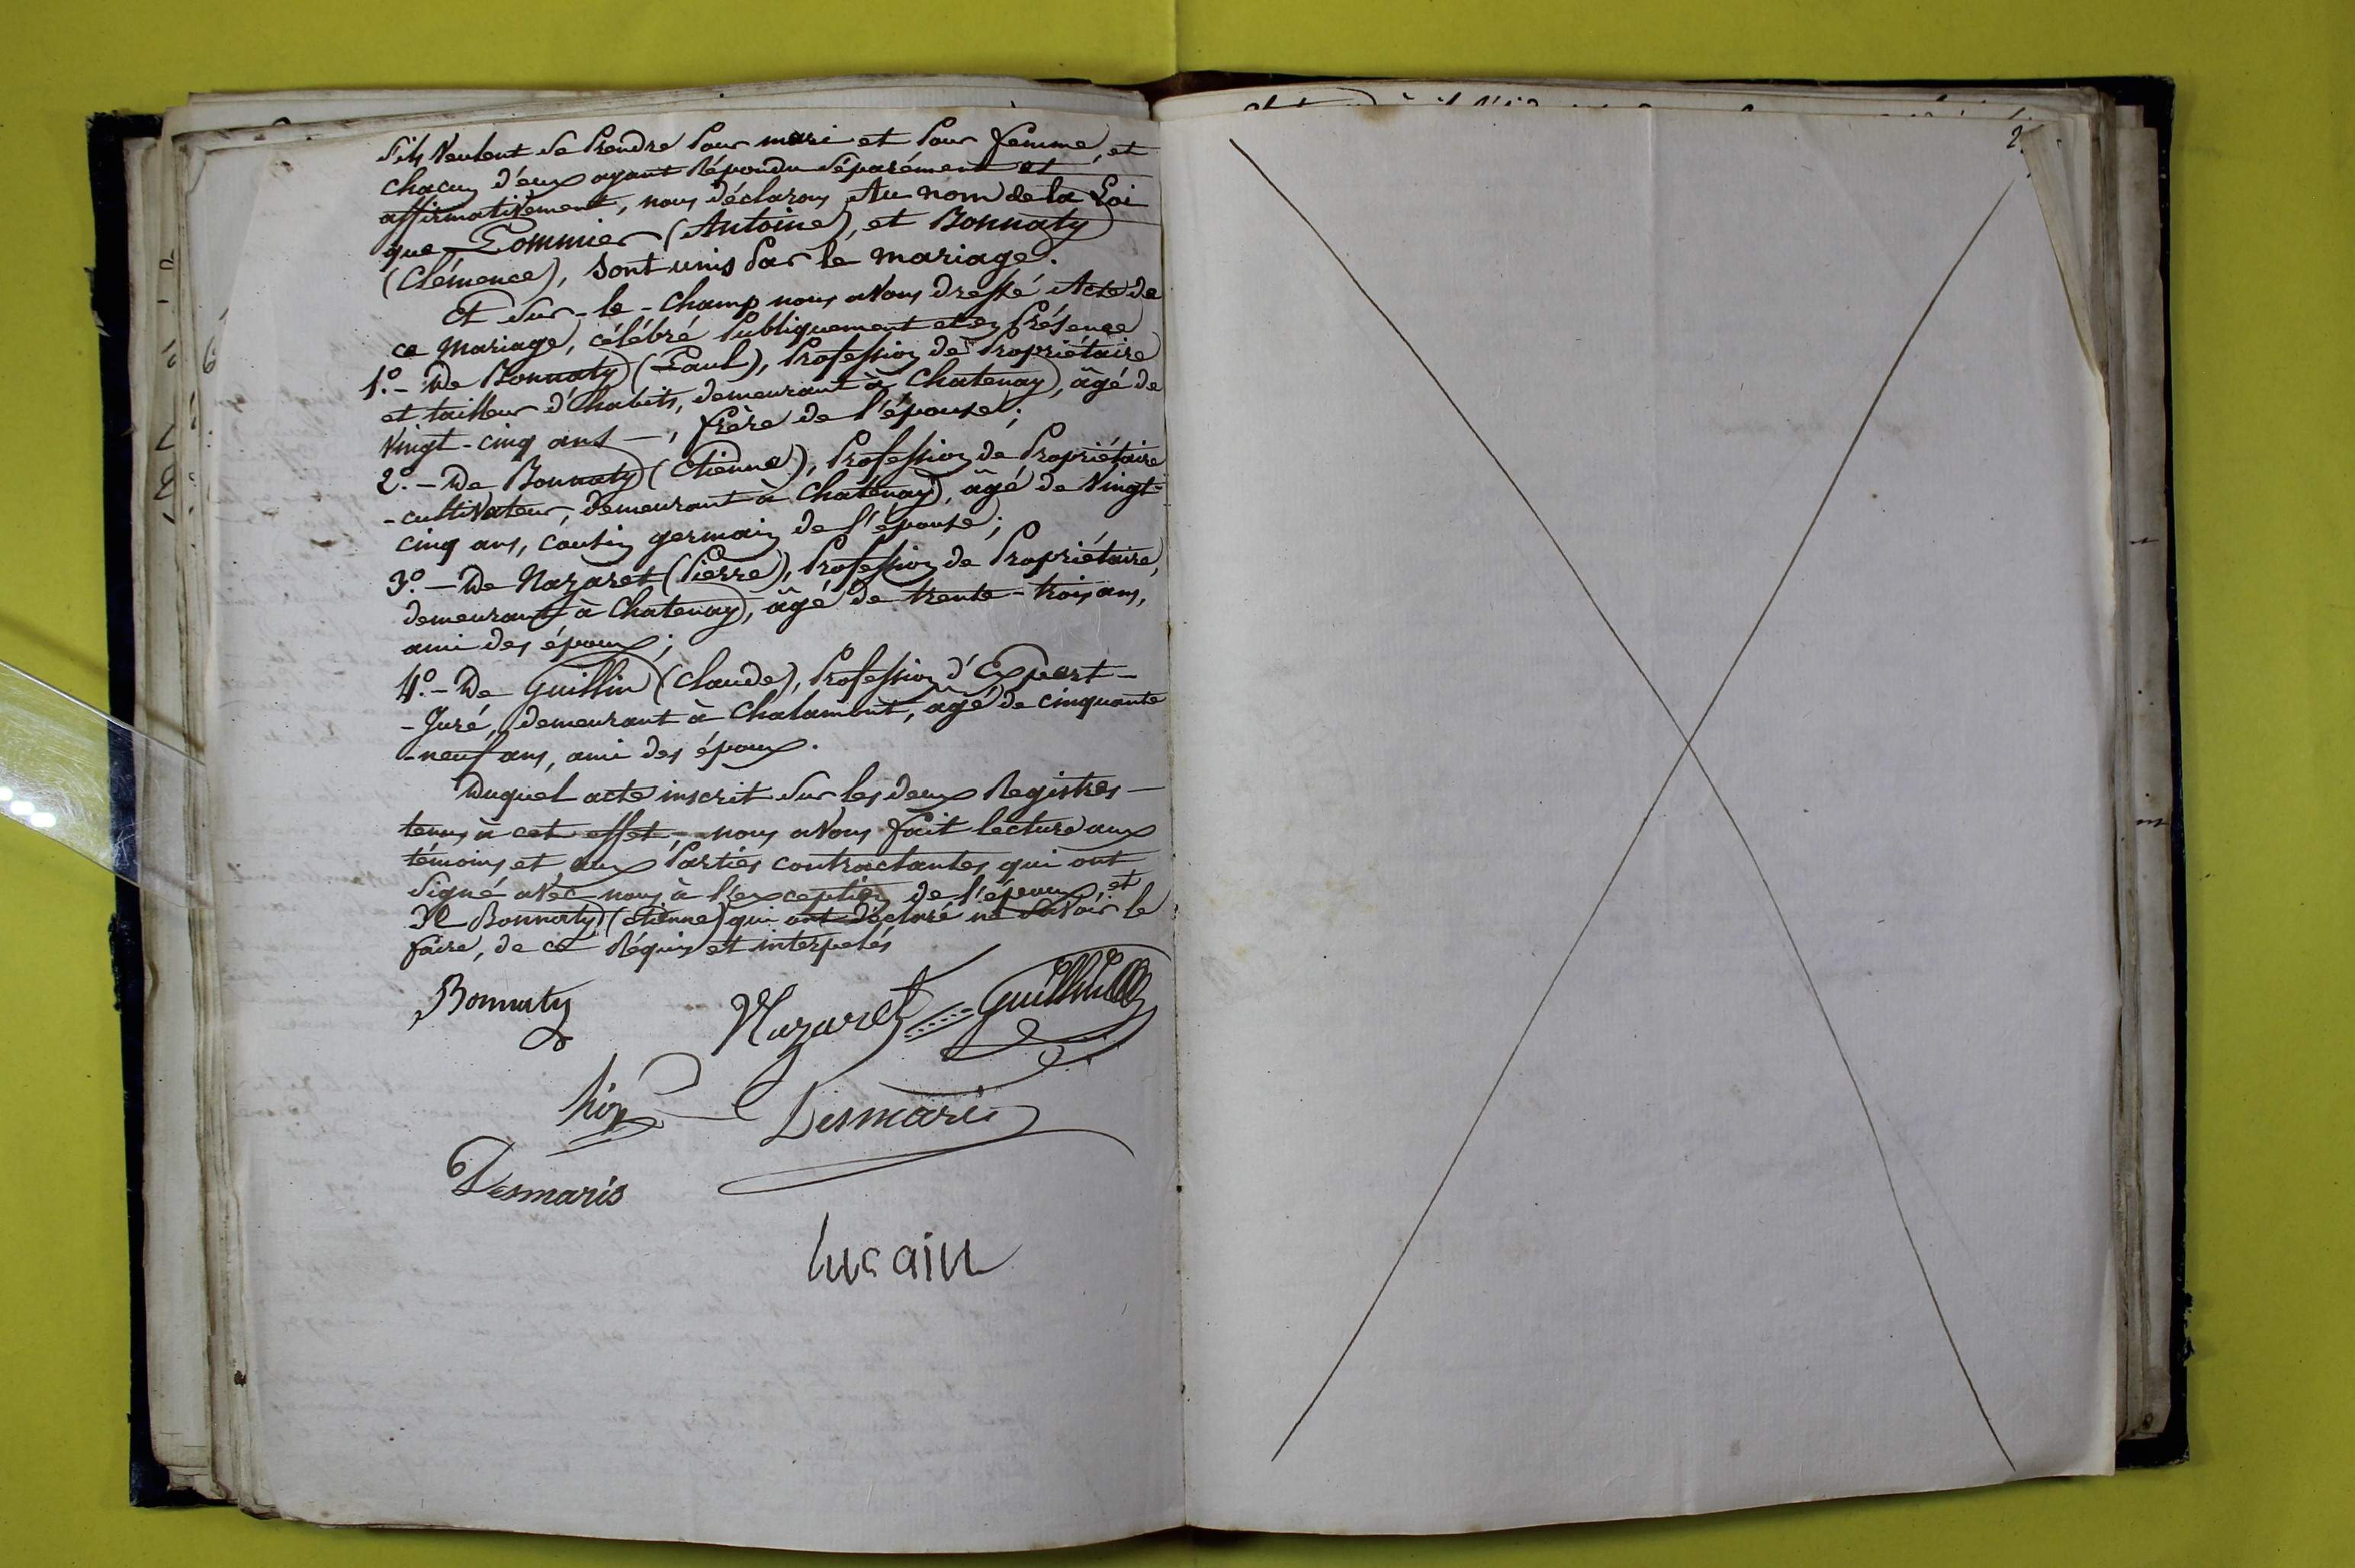 s'ils veulent se Prendre Pour mari et Pour femme, et
chacun d'eux ayant Répondu séparément et
affirmativement, nous déclarons Au nom de la Loi
que Pommier (Antoine), et Bonnaty
(Clémence), sont unis Par le mariage.
Et sur-le-champ nous avons dressé Acte de
ce mariage, célébré Publiquement et en Présence
1.° - De Bonnaty (Paul), Profession de Propriétaire
et tailleur d'habits, demeurant à Chatenay, âgé de
vingt-cinq ans -, frère de l'épouse;
2.° - De Bonnaty (Etienne), Profession de Propriétaire
- cultivateur, demeurant à Chatenay, âgé de vingt-
cinq ans, cousin germain de l'épouse;
3.° - De Nazaret (Pierre), Profession de Propriétaire,
demeurant à Chatenay, âgé de trente-trois ans,
ami des époux;
4.° - De Guillin (Claude), Profession d'Expert-
-Juré, demeurant à Chalamont, âgé de cinquante
-neuf ans, ami des époux.
Duquel acte inscrit sur les deux Registres -
tenus à cet effet, nous avons fait lecture aux
témoins et aux Parties contractantes, qui ont
signé avec nous à l'exception de l'époux, et
De Bonnaty (Etienne) qui ont déclaré ne savoir le
faire, de ce Réquis et interpelés
Bonnaty
Nazaret Guillin
Desmaris
Desmaris
Lucain